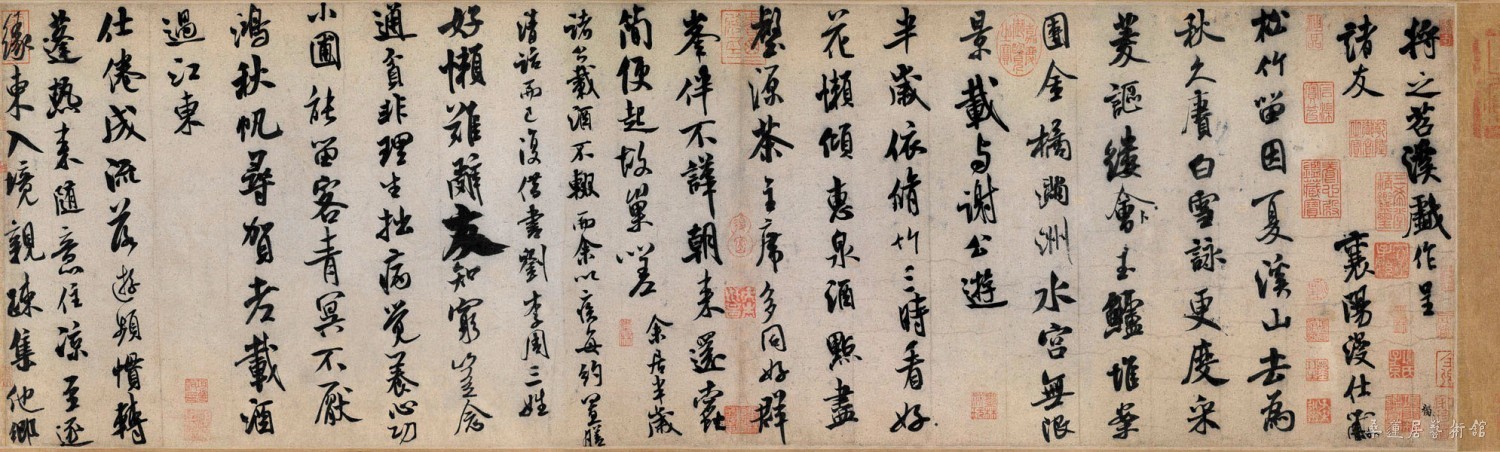 將之苕溪戲作呈
諸友 襄陽漫仕黻
松竹留因夏溪山去為
秋久賡白雪詠更度采
菱謳縷會卜玉鱸堆案
團金橘滿洲水宮無限
景載与謝公遊
半歲依脩竹三時看好
花懶傾惠泉酒點盡
壑源茶主席多同好群
峯伴不譁朝來還蠹
簡便起故巢嗟 余居半歲
諸公載酒不輟而余以疾每約置膳
清話而已復借書劉李周三姓
好懶難辭友知窮豈念
通貧非理生拙病覺養心功
小圃能留客青冥不厭
鴻秋帆尋賀老載酒
過江東
仕倦成流落遊頻慣轉
蓬熱來隨意住涼至逐
緣東入境親疎集他鄉
桑蓮居藝術館